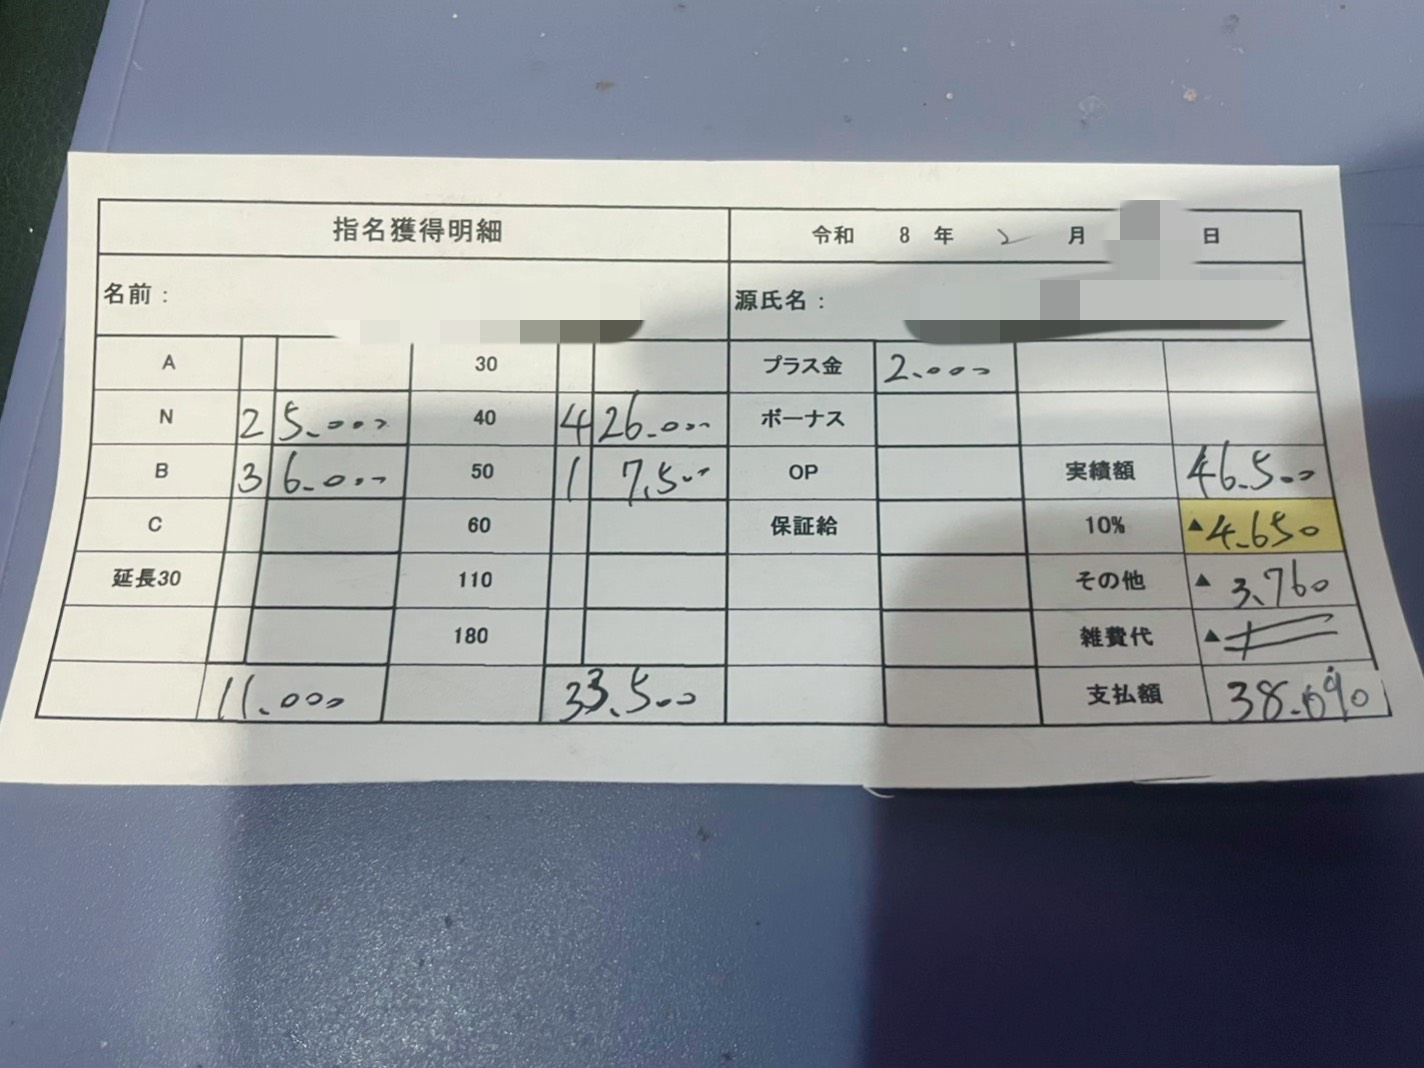 指名獲得明細 令和 8 年 2 月 日
名前： 源氏名：
A 30 プラス金 2.000
N 2 5.000 40 4 26.000 ボーナス
B 3 6.000 50 1 7.500 OP 実績額 46.500
C 60 保証給 10% ▲4.650
延長30 110 その他 ▲3.760
180 雑費代 ▲
11.000 33.500 支払額 38.090